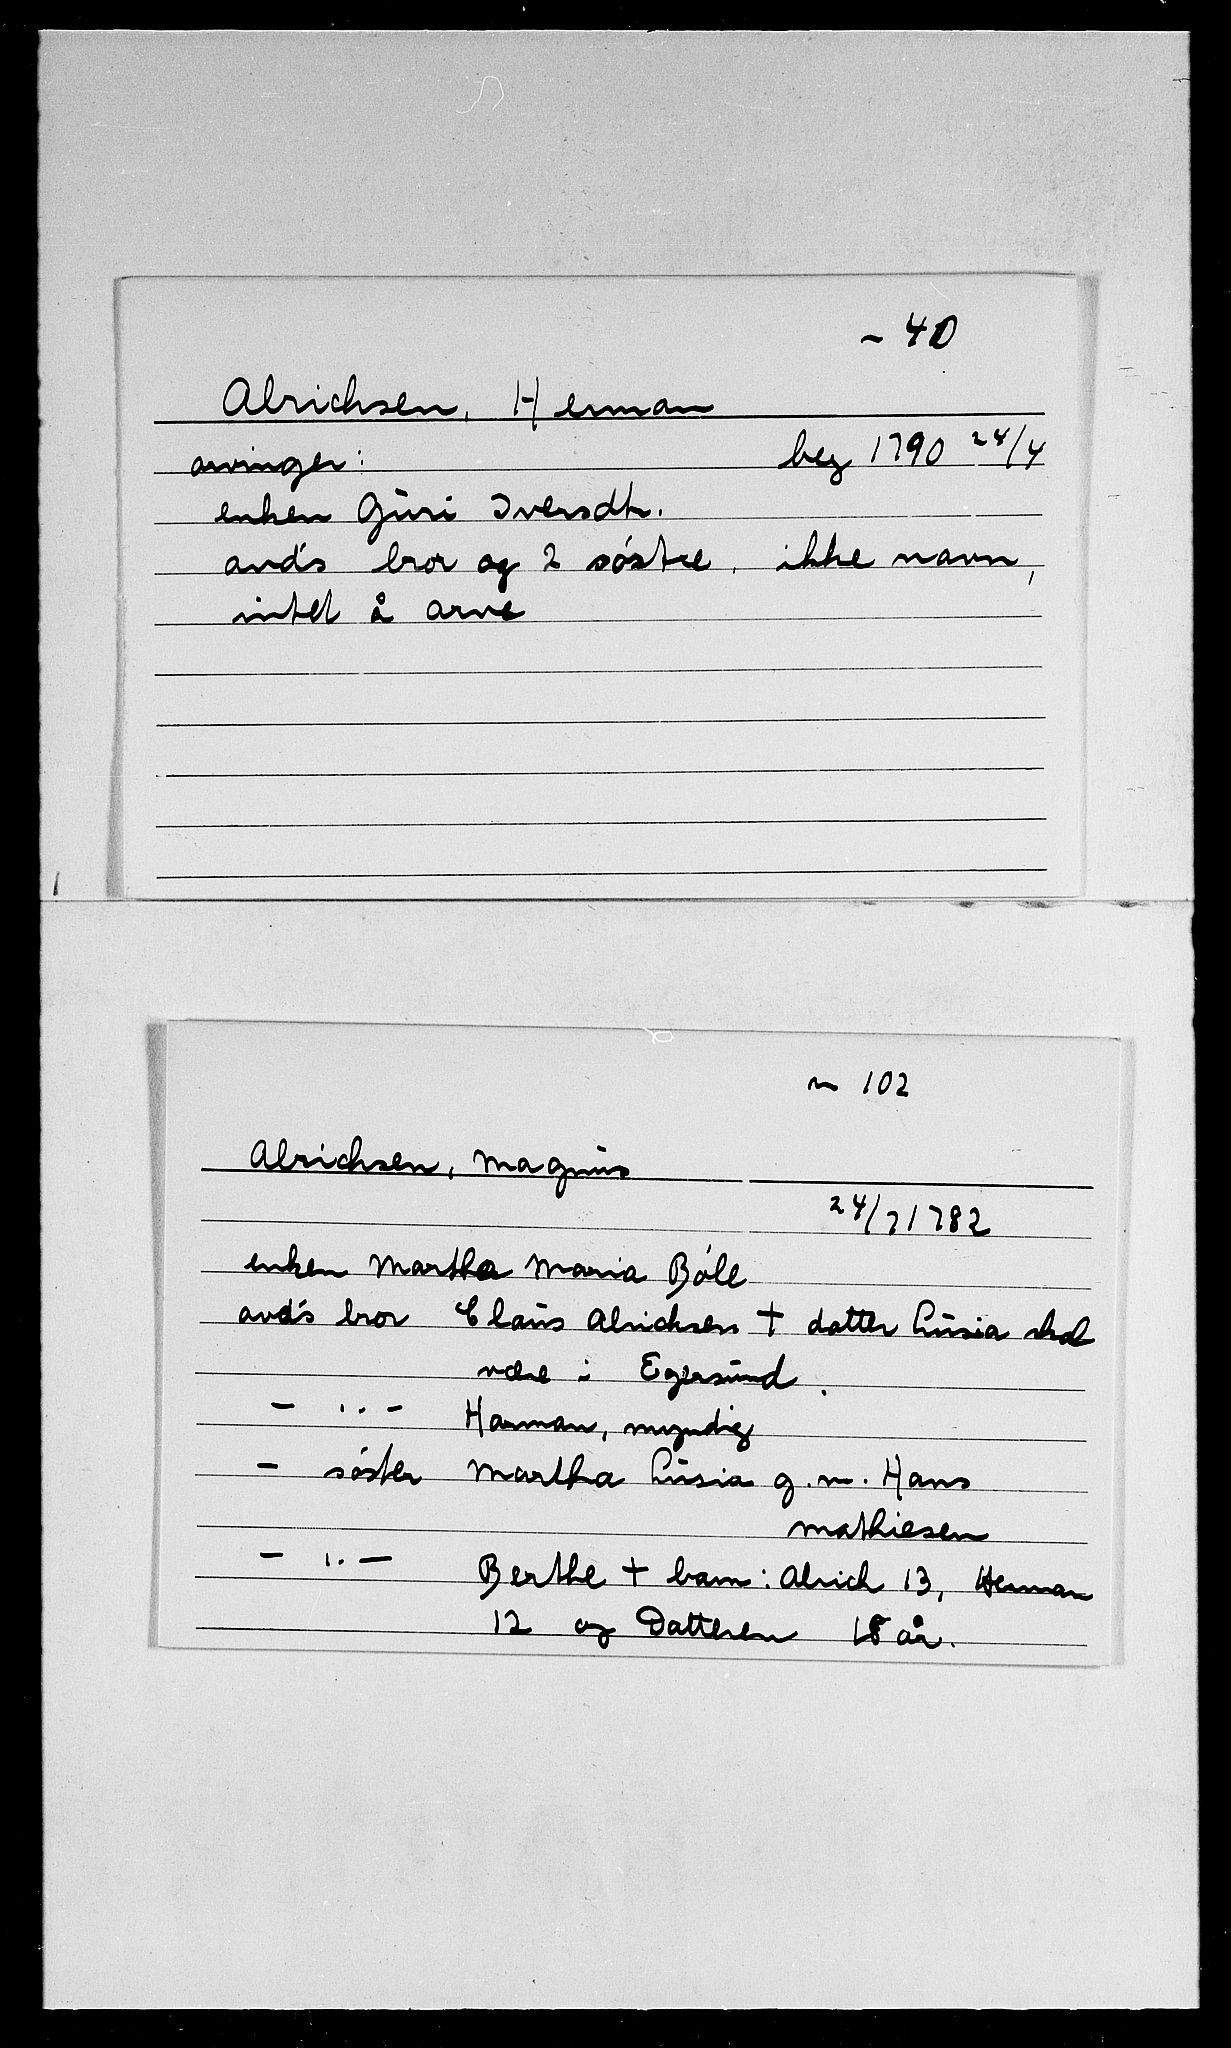 ~ 40
Alrichsen, Herman
arvinger: beg 1790 24/4
enken Guri Iversdtr.
avd's bror og 2 søstre, ikke navn,
intet å arve
~ 102
Alrichsen, Magnus
24/7 1782
enken Martha Maria Bøll
avd's bror Claus Alrichsen + datter Lusia skal
være i Egersund.
- " - Harman, myndig
- søster Martha Lusia g.m. Hans
Mathiesen
- " - Berthe + barn: Alrich 13, Herman
12 og Datteren 18 år.